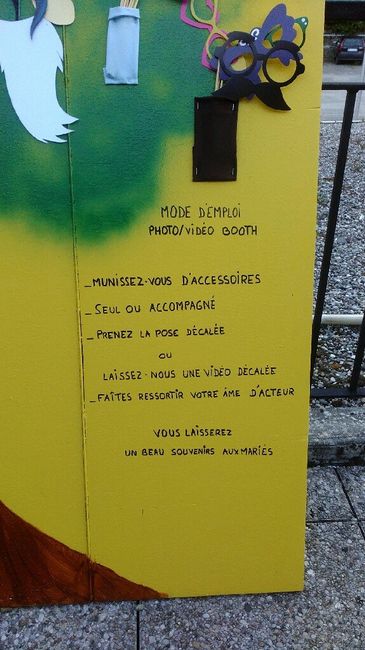 MODE D'EMPLOI
PHOTO/VIDÉO BOOTH
_MUNISSEZ-VOUS D'ACCESSOIRES
_SEUL OU ACCOMPAGNÉ
_PRENEZ LA POSE DÉCALÉE
OU
LAISSEZ-NOUS UNE VIDÉO DÉCALÉE
_FAÎTES RESSORTIR VOTRE ÂME D'ACTEUR
VOUS LAISSEREZ
UN BEAU SOUVENIRS AUX MARIÉS